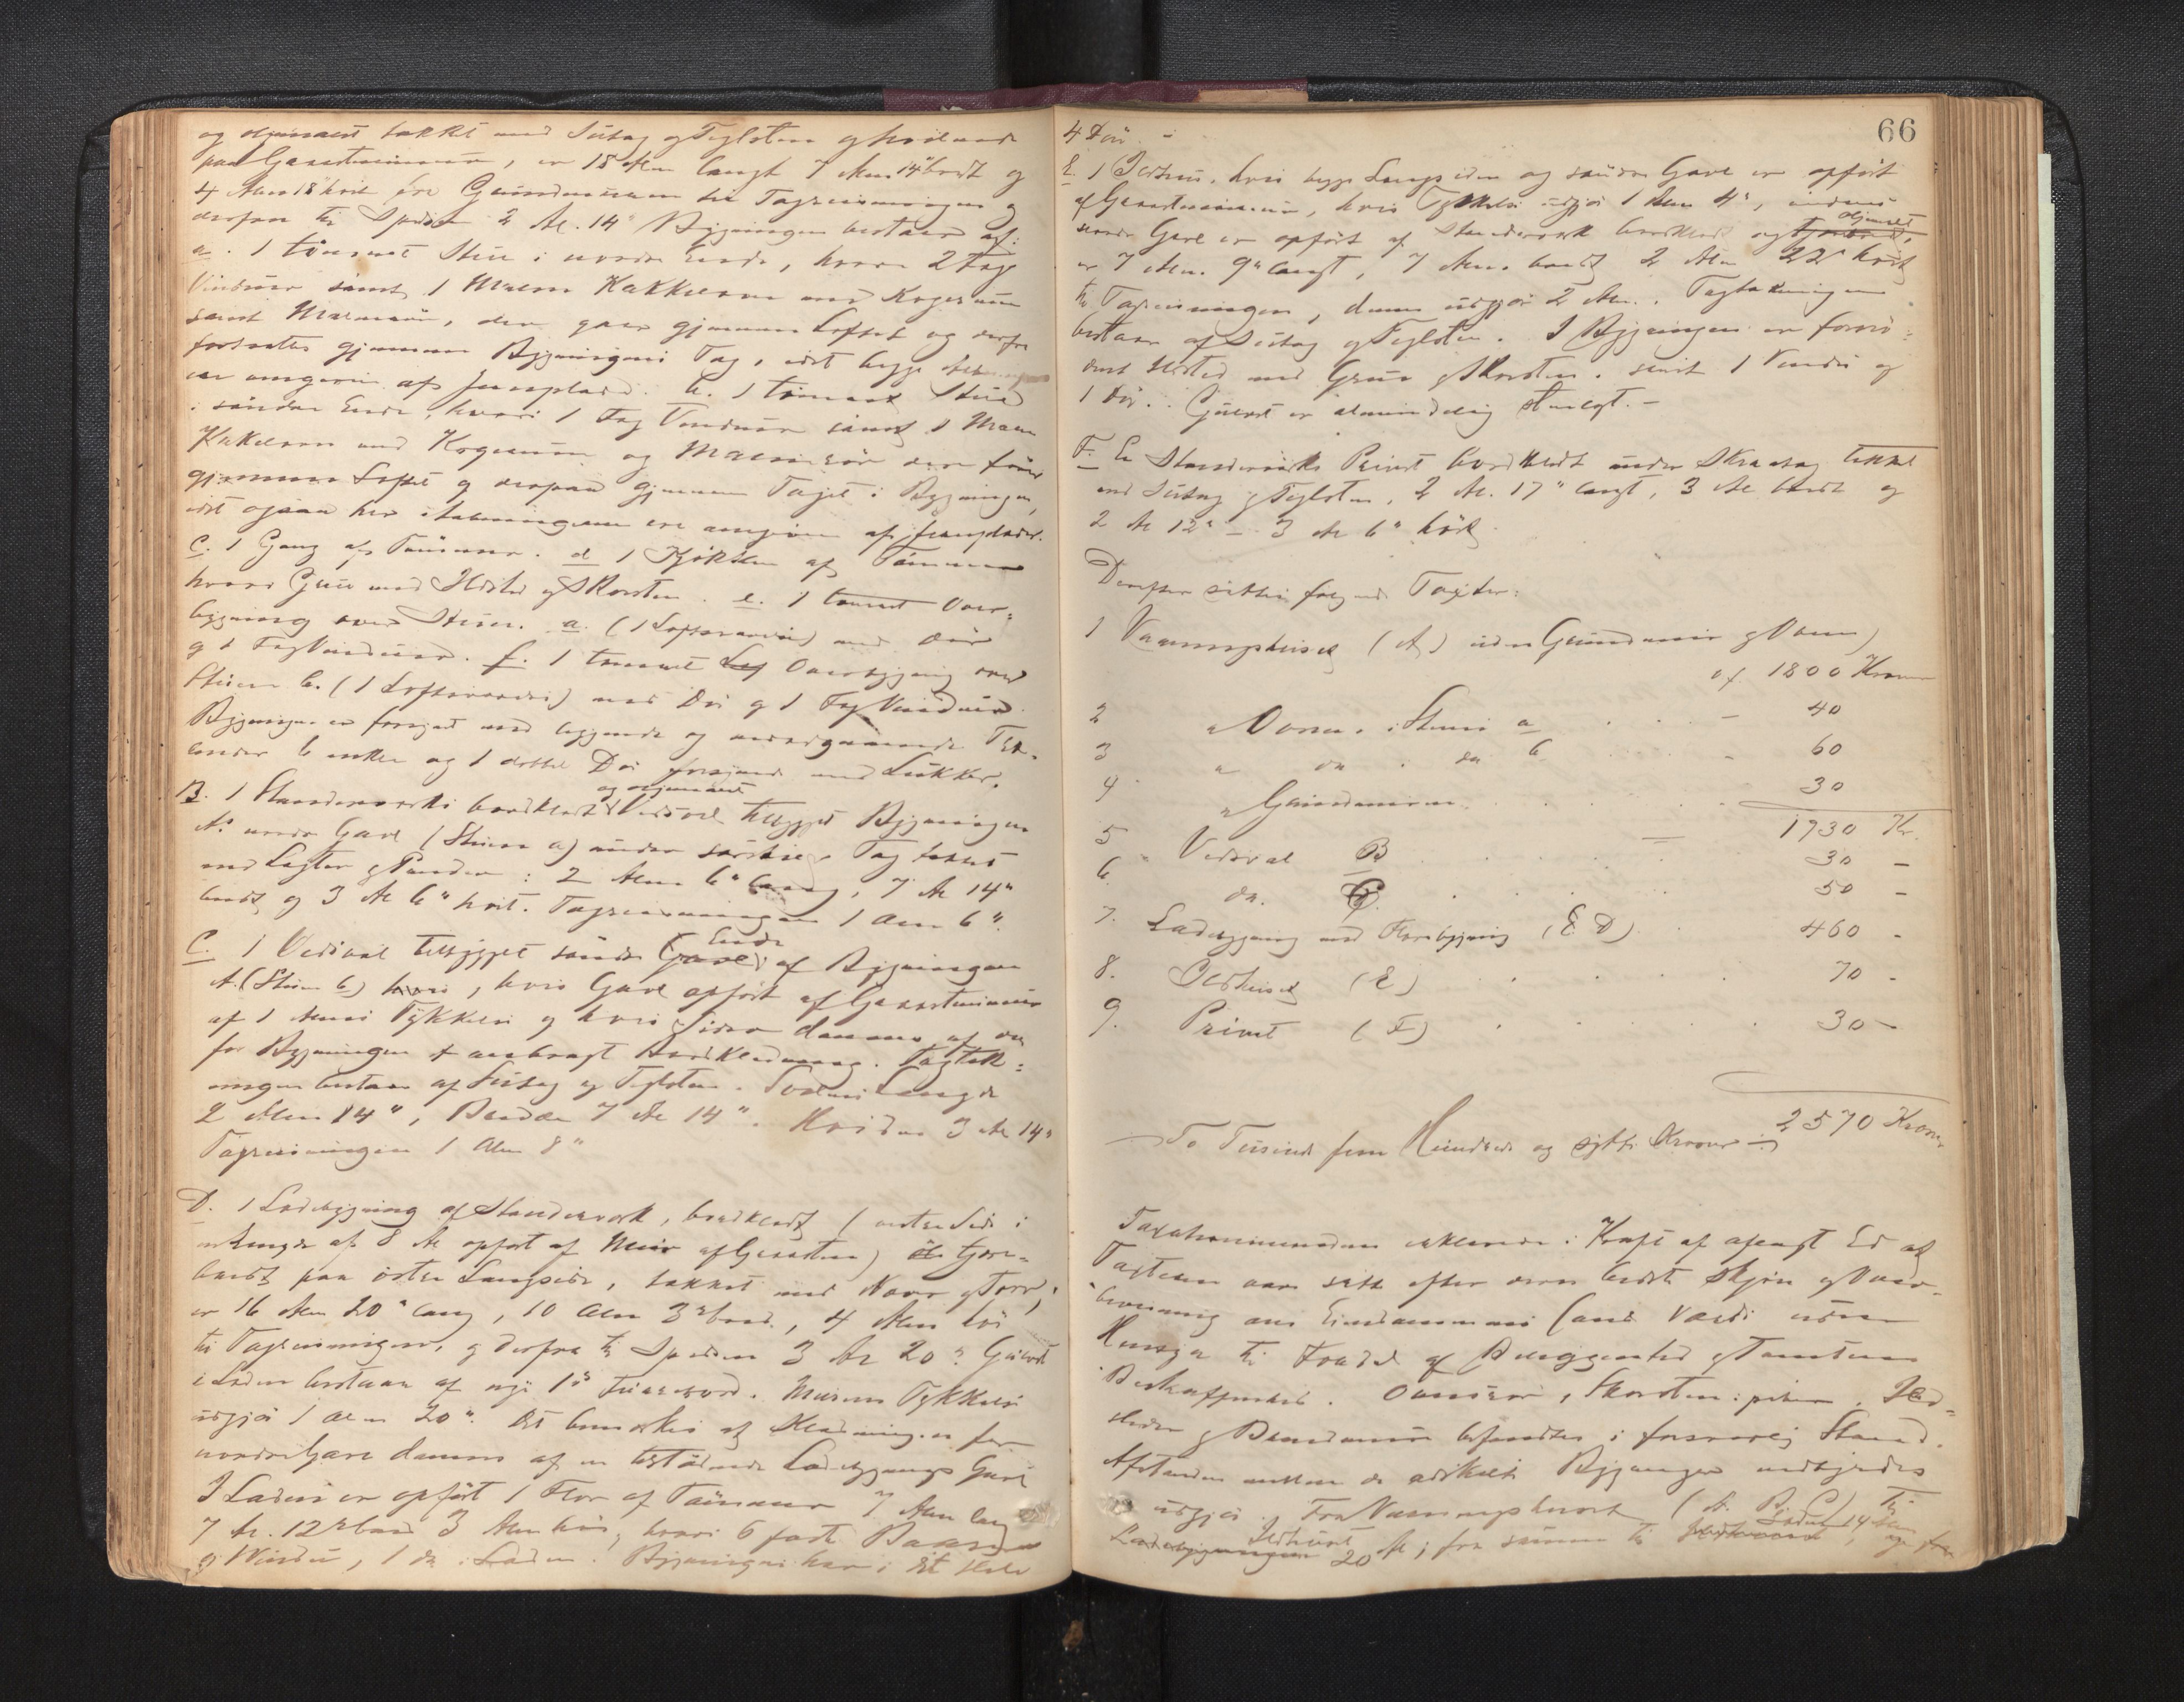 og oljemalet takket med Sutag og Teglsten og hvilende
paa Graastensmuur, er 15 Alen langt 7 Alen 14" bredt og
4 Alen 18" høit fra Grundmuren til Tagreisningen og
derfra til Spidsen 2 Al. 14" Bygningen bestaar af:
a. 1 tømret Stue i nordre Ende, hvori 2 Fag
Vinduer samt 1 Kakkelovn med Kogerum
samt, der gaar gjennem Loftet og derfra
fortsættes gjennem Bygningens Tag, idet begge
ere omgivne af Jernplader. b. 1 tømret Stue
i søndre Ende, hvori 1 Fag Vinduer samt 1
Kakelovn med Kogerum og der fører
gjennem Loftet og derpaa gjennem Taget i Bygningen,
idet ogsaa her Aabningerne ere omgivne af Jernplader.
c. 1 Gang af Tømmer. d 1 Kjøkken af Tømmer
hvori Grue med Ildsted og Skorsten. e. 1 tømret Over-
bygning over Stuen a. (1 Loftsværelse) med Dør
og 1 Fag Vinduer. f. 1 tømret Overbygning over
Stuen b. (1 Loftsværelse) med Dør og 1 Fag Vinduer.
Bygningen er forsynet med liggende og nedadgaaende
render 6 enkle og 1 dobbel Dør forsynede med Lukker.
og oljemalet
B. 1 Standerværks bordklædt Vedsval tilbygget Bygningen
A's nordre Gavl (Stuen a) under særskilt Tag tækket
med Lægter og Pander: 2 Alen 6" lang, 7 Al 14"
bredt og 3 Al 6" høit. Tagreisningen 1 Alen 6".
Ende
C. 1 Vedsval tilbygget søndre Gavel af Bygningen
A. (Stuen b) hvori, hvis Gavl opført af Graastensmuur
af 1 Alens Tykkelse og hvis Sider dannes af en
for Bygningen anbragt Bordklædning. Tagtæk-
ningen bestaar af Sutag og Teglsten. Svalens Længde
2 Alen 14", Bredde 7 Al 14". Høiden 3 Al 14"
Tagreisningen 1 Alen 8"
D. 1 Ladebygning af Standerværk, bordklædt (vestre Side i
en Længde af 8 Al opført af Muur af Graasten) tjære-
bredt paa østre Langside, tækket med Næver og Torv,
er 16 Alen 20" lang, 10 Alen 3" bred, 4 Alen høi
til Tagreisningen, og derfra til Spidsen 3 Al 20". Gulvet
i Laden bestaar af nye 1½" Furuebord. Murens Tykkelse
udgjør 1 Alen 20". Det bemærkes at Klædningen for
nordre Gavl dannes af en tilstødende Ladebygnings Gavl
I Laden er opført 1 Flor af Tømmer 7 Alen lang
7 Al. 12" bred 3 Alen høi, hvori 6 faste Baase
og Vindu, 1 do i Laden. Bygningen har i det Hele
66
4 Dør.
E. 1 Ildhus, hvis begge Langsider og søndre Gavl er opført
af Graastensmuur, hvis Tykkelse udgjør 1 Alen 4", medens
oljemalet
nordre Gavl er opført af Standerværk bordklædt og tjærebredt,
er 7 Alen 9" langt, 7 Alen bredt 2 Alen 22" høit
til Tagreisningen, denne udgjør 2 Alen. Tagtækningen
bestaar af Sutag og Teglsten. I Bygningen er
Ildsted med Grue og Skorsten, samt 1 Vindu og
1 Dør. Gulvet er almindelig Steenlagt. –
F. Et Standerværks Privet bordklædt under Skraatag tækket
med Sutag og Teglsten, 2 Al. 17" langt, 3 Al bredt og
2 Al 12" – 3 Al 6" høit
Derefter sattes følgende Taxter:
1 Vaaningshuset (A) uden Grundmur og Ovne
af 1800 Kroner
2 " Ovnen i Stuen a . . . – 40
3 " do . do b . . . – 60
4 " Grundmuren . . . . 30
1930 Kr.
5 " Vedsval B . . . 30 –
6. do. C. . . . . 50 –
7. Ladebygning med Florsbygning (D) . . 460 –
8. Ildhuset (E) . . . . 70 –
9. Privet (F) . . . . 30 –
2570 Kroner
To Tusinde fem Hundrede og sytti Kroner
Taxationsmændene erklærede i Kraft af aflagt Ed at
Taxterne vare satte efter deres bedste Skjøn og Over-
bevisning om Eiendommens sande Værdi uden
Hensyn til Fordel af Beliggenhed og Tomtens
Beskaffenhed. Ovnsrør, Skorstenspiber, Ild-
steder og Brandmure befandtes i forsvarlig Stand.
Afstanden mellem de adskilte Bygninger
udgjør. Fra Vaaningshuset (A. B. C) til
Ildhuset Laden 14 Alen
Ladebygningen 20 Al; fra samme til Ildhuset, og fra